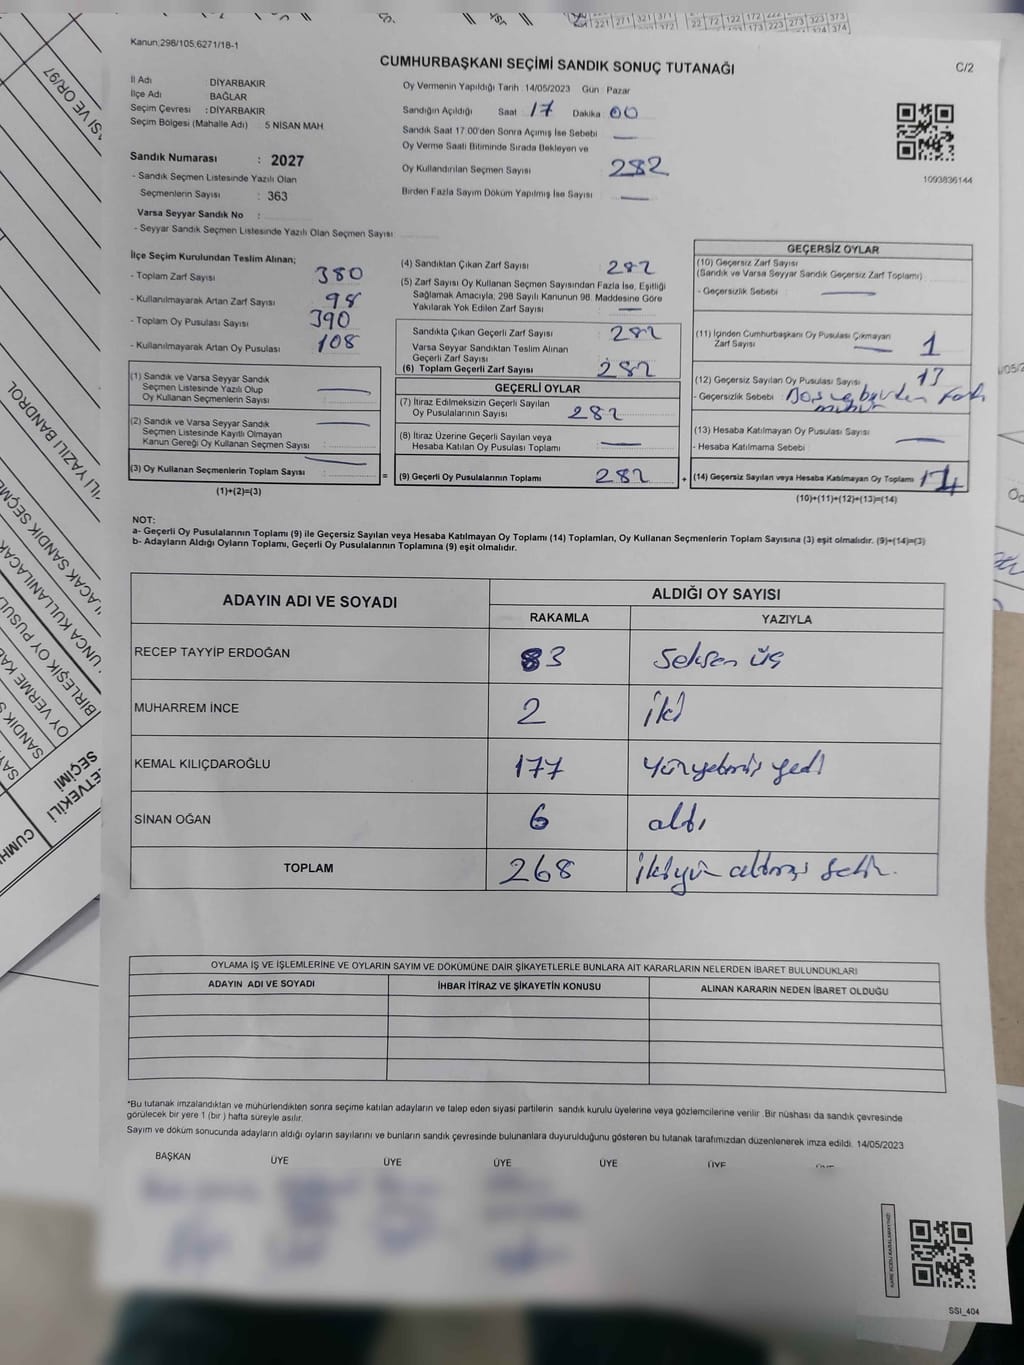 Kanun;298/105,6271/18-1
CUMHURBAŞKANI SEÇİMİ SANDIK SONUÇ TUTANAĞI
C/2
İl Adı : DİYARBAKIR
İlçe Adı : BAĞLAR
Seçim Çevresi : DİYARBAKIR
Seçim Bölgesi (Mahalle Adı) : 5 NİSAN MAH
Sandık Numarası : 2027
- Sandık Seçmen Listesinde Yazılı Olan
Seçmenlerin Sayısı : 363
Varsa Seyyar Sandık No :
- Seyyar Sandık Seçmen Listesinde Yazılı Olan Seçmen Sayısı
Oy Vermenin Yapıldığı Tarih :14/05/2023 Gün : Pazar
Sandığın Açıldığı Saat : 17 Dakika : 00
Sandık Saat 17:00'den Sonra Açımış İse Sebebi : —
Oy Verme Saati Bitiminde Sırada Bekleyen ve
Oy Kullandırılan Seçmen Sayısı : 282
Birden Fazla Sayım Döküm Yapılmış İse Sayısı : —
1093836144
İlçe Seçim Kurulundan Teslim Alınan;
- Toplam Zarf Sayısı : 380
- Kullanılmayarak Artan Zarf Sayısı : 98
- Toplam Oy Pusulası Sayısı : 390
- Kullanılmayarak Artan Oy Pusulası : 108
(1) Sandık ve Varsa Seyyar Sandık
Seçmen Listesinde Yazılı Olup
Oy Kullanan Seçmenlerin Sayısı : —
(2) Sandık ve Varsa Seyyar Sandık
Seçmen Listesinde Kayıtlı Olmayan
Kanun Gereği Oy Kullanan Seçmen Sayısı : —
(3) Oy Kullanan Seçmenlerin Toplam Sayısı : —
(1)+(2)=(3)
(4) Sandıktan Çıkan Zarf Sayısı : 282
(5) Zarf Sayısı Oy Kullanan Seçmen Sayısından Fazla İse, Eşitliği
Sağlamak Amacıyla, 298 Sayılı Kanunun 98. Maddesine Göre
Yakılarak Yok Edilen Zarf Sayısı : —
Sandıkta Çıkan Geçerli Zarf Sayısı : 282
Varsa Seyyar Sandıktan Teslim Alınan
Geçerli Zarf Sayısı :
(6) Toplam Geçerli Zarf Sayısı : 282
GEÇERLİ OYLAR
(7) İtiraz Edilmeksizin Geçerli Sayılan
Oy Pusulalarının Sayısı : 282
(8) İtiraz Üzerine Geçerli Sayılan veya
Hesaba Katılan Oy Pusulası Toplamı : —
= (9) Geçerli Oy Pusulalarının Toplamı : 282 +
GEÇERSİZ OYLAR
(10) Geçersiz Zarf Sayısı
(Sandık ve Varsa Seyyar Sandık Geçersiz Zarf Toplamı) :
- Geçersizlik Sebebi : —
(11) İçinden Cumhurbaşkanı Oy Pusulası Çıkmayan
Zarf Sayısı : — 1
(12) Geçersiz Sayılan Oy Pusulası Sayısı : 13
- Geçersizlik Sebebi : Boş ve birden fazla
mühür
(13) Hesaba Katılmayan Oy Pusulası Sayısı : —
- Hesaba Katılmama Sebebi :
(14) Geçersiz Sayılan veya Hesaba Katılmayan Oy Toplamı : 14
(10)+(11)+(12)+(13)=(14)
NOT:
a- Geçerli Oy Pusulalarının Toplamı (9) ile Geçersiz Sayılan veya Hesaba Katılmayan Oy Toplamı (14) Toplamları, Oy Kullanan Seçmenlerin Toplam Sayısına (3) eşit olmalıdır. (9)+(14)=(3)
b- Adayların Aldığı Oyların Toplamı, Geçerli Oy Pusulalarının Toplamına (9) eşit olmalıdır.
ADAYIN ADI VE SOYADI
ALDIĞI OY SAYISI
RAKAMLA YAZIYLA
RECEP TAYYİP ERDOĞAN 83 Seksen üç
MUHARREM İNCE 2 iki
KEMAL KILIÇDAROĞLU 177 yüzyetmiş yedi
SİNAN OĞAN 6 altı
TOPLAM 268 ikiyüz altmış sekiz.
OYLAMA İŞ VE İŞLEMLERİNE VE OYLARIN SAYIM VE DÖKÜMÜNE DAİR ŞİKAYETLERLE BUNLARA AİT KARARLARIN NELERDEN İBARET BULUNDUKLARI
ADAYIN ADI VE SOYADI İHBAR İTİRAZ VE ŞİKAYETİN KONUSU ALINAN KARARIN NEDEN İBARET OLDUĞU
*Bu tutanak imzalandıktan ve mühürlendikten sonra seçime katılan adayların ve talep eden siyasi partilerin sandık kurulu üyelerine veya gözlemcilerine verilir. Bir nüshası da sandık çevresinde
görülecek bir yere 1 (bir ) hafta süreyle asılır.
Sayım ve döküm sonucunda adayların aldığı oyların sayılarını ve bunların sandık çevresinde bulunanlara duyurulduğunu gösteren bu tutanak tarafımızdan düzenlenerek imza edildi. 14/05/2023
BAŞKAN ÜYE ÜYE ÜYE ÜYE ÜYE
SSI_404